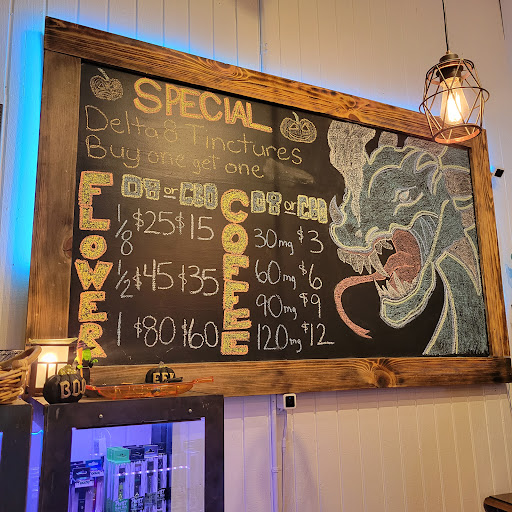 SPECIAL
Delta 8 Tinctures
Buy one get one
FLOWER
D8 or CBD
1/8 $25 $15
1/2 $45 $35
1 $80 $60
COFFEE
D8 or CBD
30mg $3
60mg $6
90mg $9
120mg $12
BOO